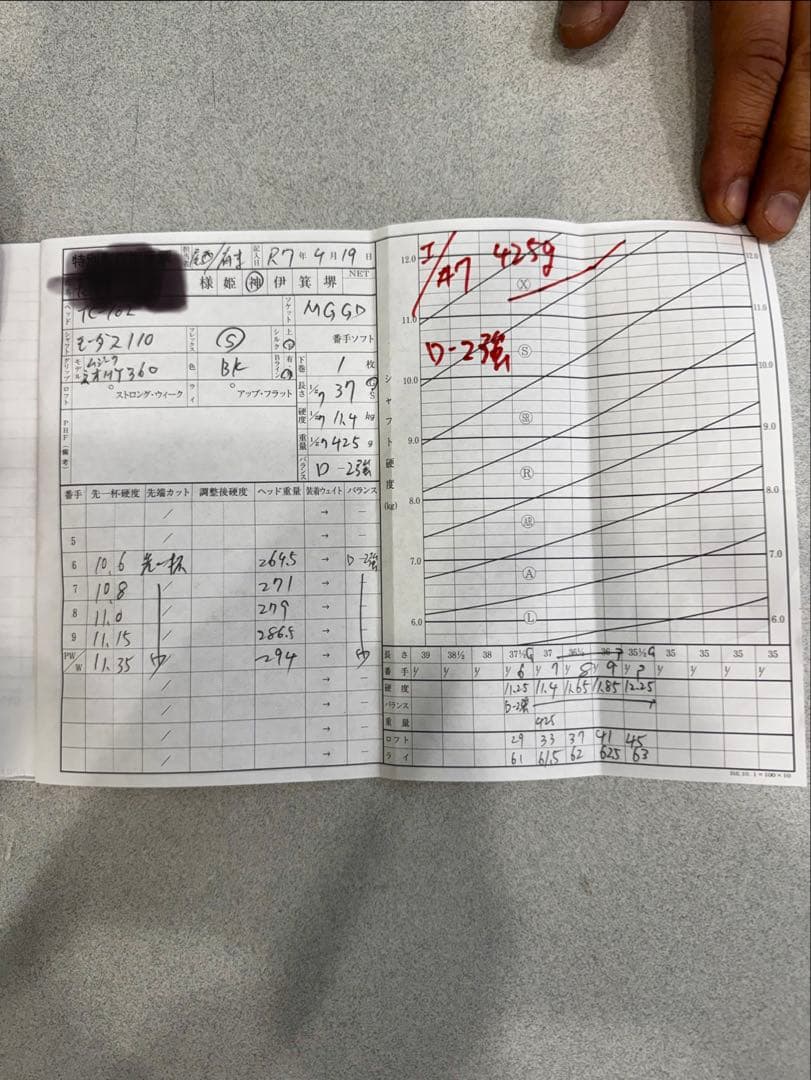 特別
担当者
記入日 R7年4月19日
様 姫 神 伊 箕 堺 NET
ヘッド TC-102
ソケット MGGD
シャフト モーダス110
フレックス S
シルク 上 下
番手ソフト
グリップ モデル 360
色 BK
Bライン 有
下巻 1 枚
ロフト ストロング・ウィーク
ライ アップ・フラット
長さ 37
硬度 11.4 kg
重量 425 g
バランス D-2強
PHF(備考)
番手 先一杯硬度 先端カット 調整後硬度 ヘッド重量 装着ウェイト バランス
/ → -
5 / → -
6 10.6 先一杯 264.5 → D-2強
7 10.8 271 →
8 11.0 / 279 →
9 11.15 / 286.5 →
PW/W 11.35 294 →
/ → -
/ → -
/ → -
/ → -
I/#7 425g
D-2強
シャフト硬度(kg)
12.0 12.0
11.0 11.0
10.0 10.0
9.0 9.0
8.0 8.0
7.0 7.0
6.0 6.0
X
S
SR
R
AR
A
L
長さ 39 38½ 38 37½ 37 36½ 36 35½ 35 35 35 35
番手 y y y y 6 y 7 y 8 y 9 y P y y y y
硬度 11.25 11.4 11.65 11.85 12.25
バランス D-2強
重量 425
ロフト 29 33 37 41 45
ライ 61 61.5 62 62.5 63